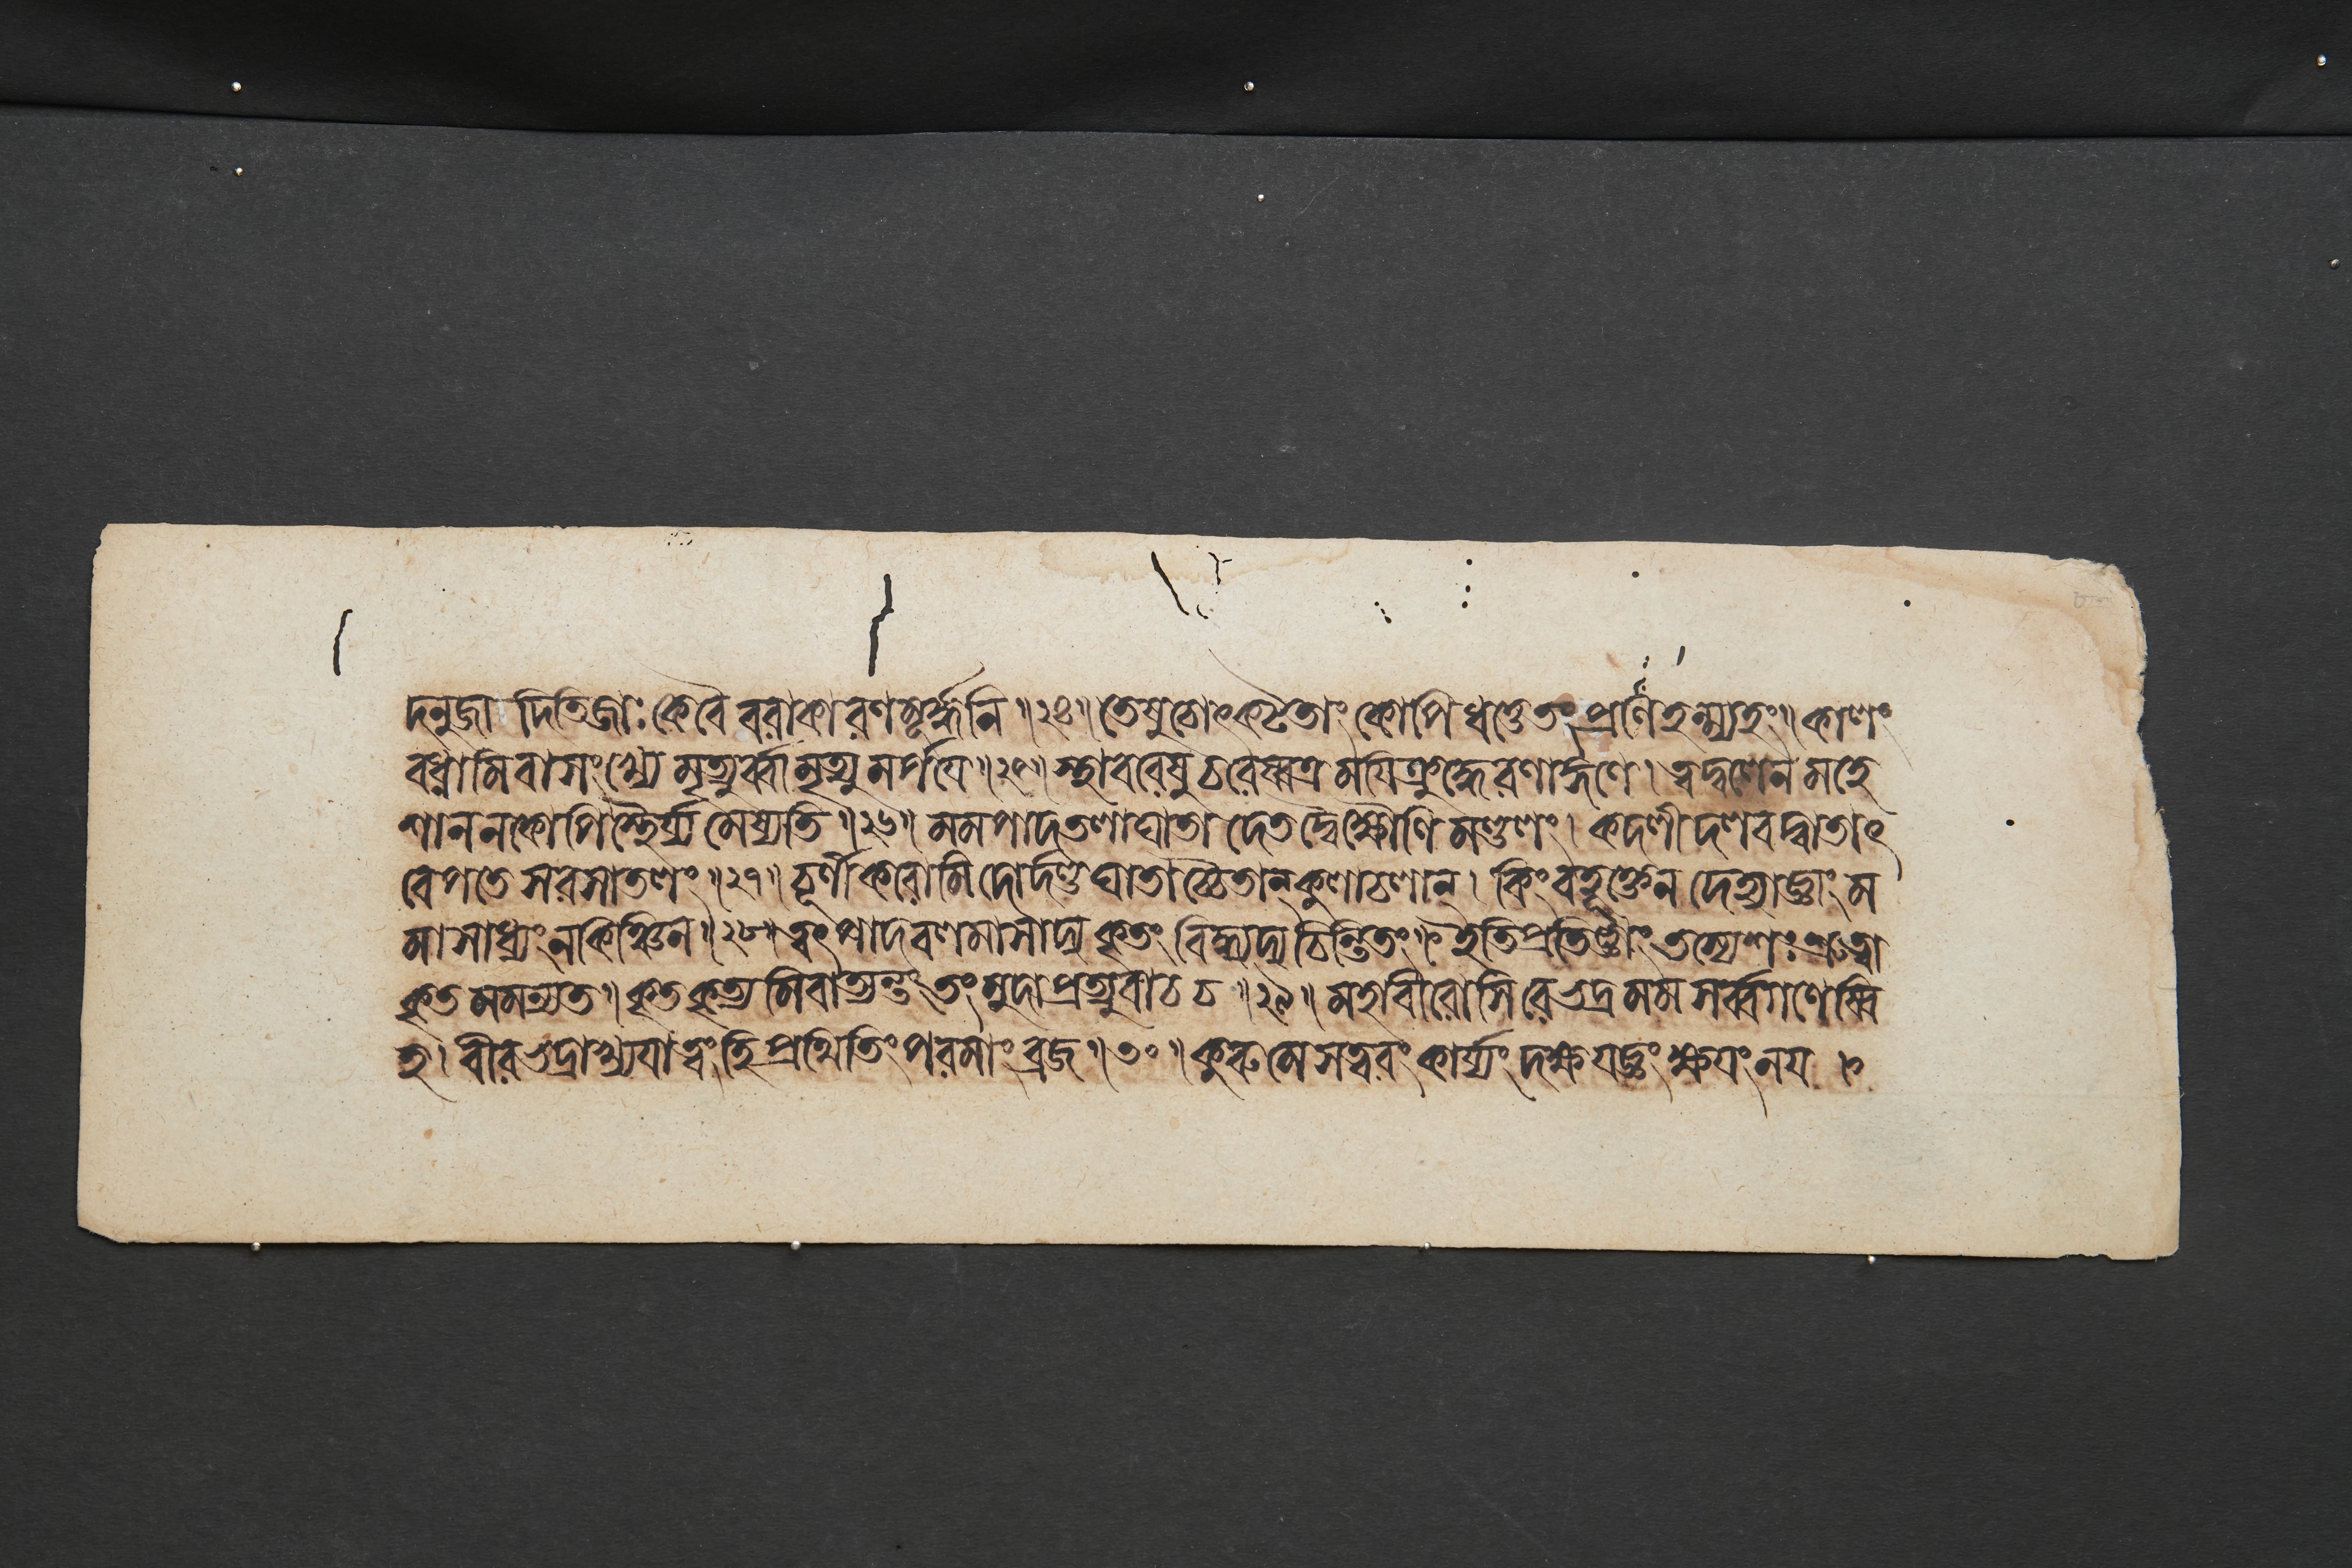 দনুজা দিতিজাঃ কে বৈ বরাকা রণমূর্দ্ধনি ॥২৪॥ তেষু চোৎকটতাং কোপি ধত্তে তং প্রণিহন্ম্যহং॥ কালং
বধ্নামি বা সংখ্যে মৃত্যুর্ব্বা মৃত্যুমর্থয়ে ॥২৫॥ স্থাবরেষু চরেষ্বত্র ময়ি ক্রুদ্ধে রণাঙ্গণে। ত্বদ্বলেন মহে
শান ন কোপি স্থৈর্য্যমেষ্যতি ॥২৬॥ মম পাদতলাঘাতাদেতদ্বৈ ক্ষৌণিমণ্ডলং। কদলীদলবদ্বাতাৎ
বেপতে সরসাতলং ॥২৭॥ চূর্ণীকরোমি দোর্দণ্ডঘাতাচ্চৈতান্ কুলাচলান্। কিং বহূক্তেন দেহ্যাজ্ঞাং ম
মাসাধ্যং ন কিঞ্চন ॥২৮॥ ত্বৎপাদবলমাসাদ্য কৃতং বিদ্ধ্যদ্য চিন্তিতং। ইতি প্রতিজ্ঞাং তস্যেশঃ শ্রুত্বা
কৃতমমন্যত॥ কৃতকৃত্যমিবাত্যন্তং তং মুদা প্রত্যুবাচ চ ॥২৯॥ মহাবীরোসি রে ভদ্র মম সর্ব্বগণেষ্বি
হ। বীরভদ্রাখ্যয়া ত্বং হি প্রথিতিং পরমাং ব্রজ ॥৩০॥ কুরু মে সত্বরং কার্য্যং দক্ষযজ্ঞং ক্ষয়ং নয়।